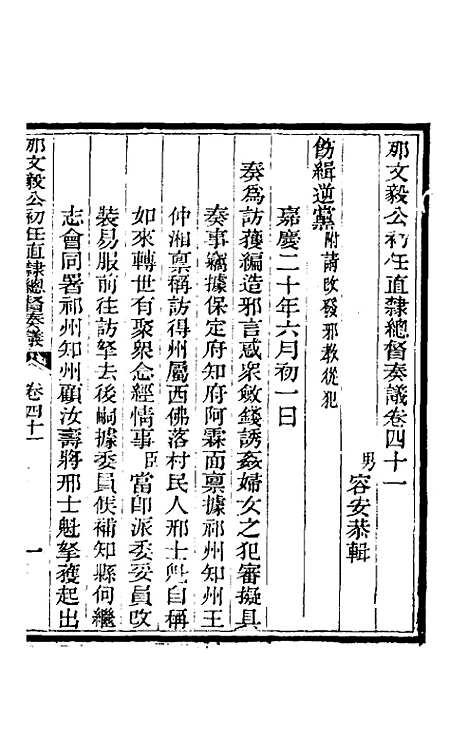 那文毅公初任直隸總督奏議卷四十一
男 容安恭輯
飭緝道黨附請改發邪教從犯
嘉慶二十年六月初一日
奏為訪獲編造邪言惑眾斂錢誘姦婦女之犯審擬具
奏事竊據保定府知府阿霖面稟據祁州知州王
仲湘稟稱訪得州屬西佛落村民人邢士魁自稱
如來轉世有聚眾念經情事臣當即派委妥員改
裝易服前往訪拏去後嗣據委員候補知縣何繼
志會同署祁州知州顧汝壽將邢士魁拏獲起出
那文毅公初任直隸總督奏議 卷四十一 一